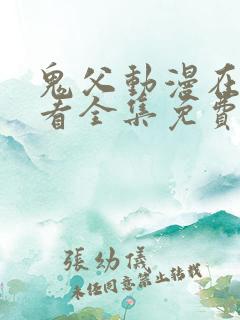 鬼父動漫在
看全集免費
張幼儀
未经同意禁止转载